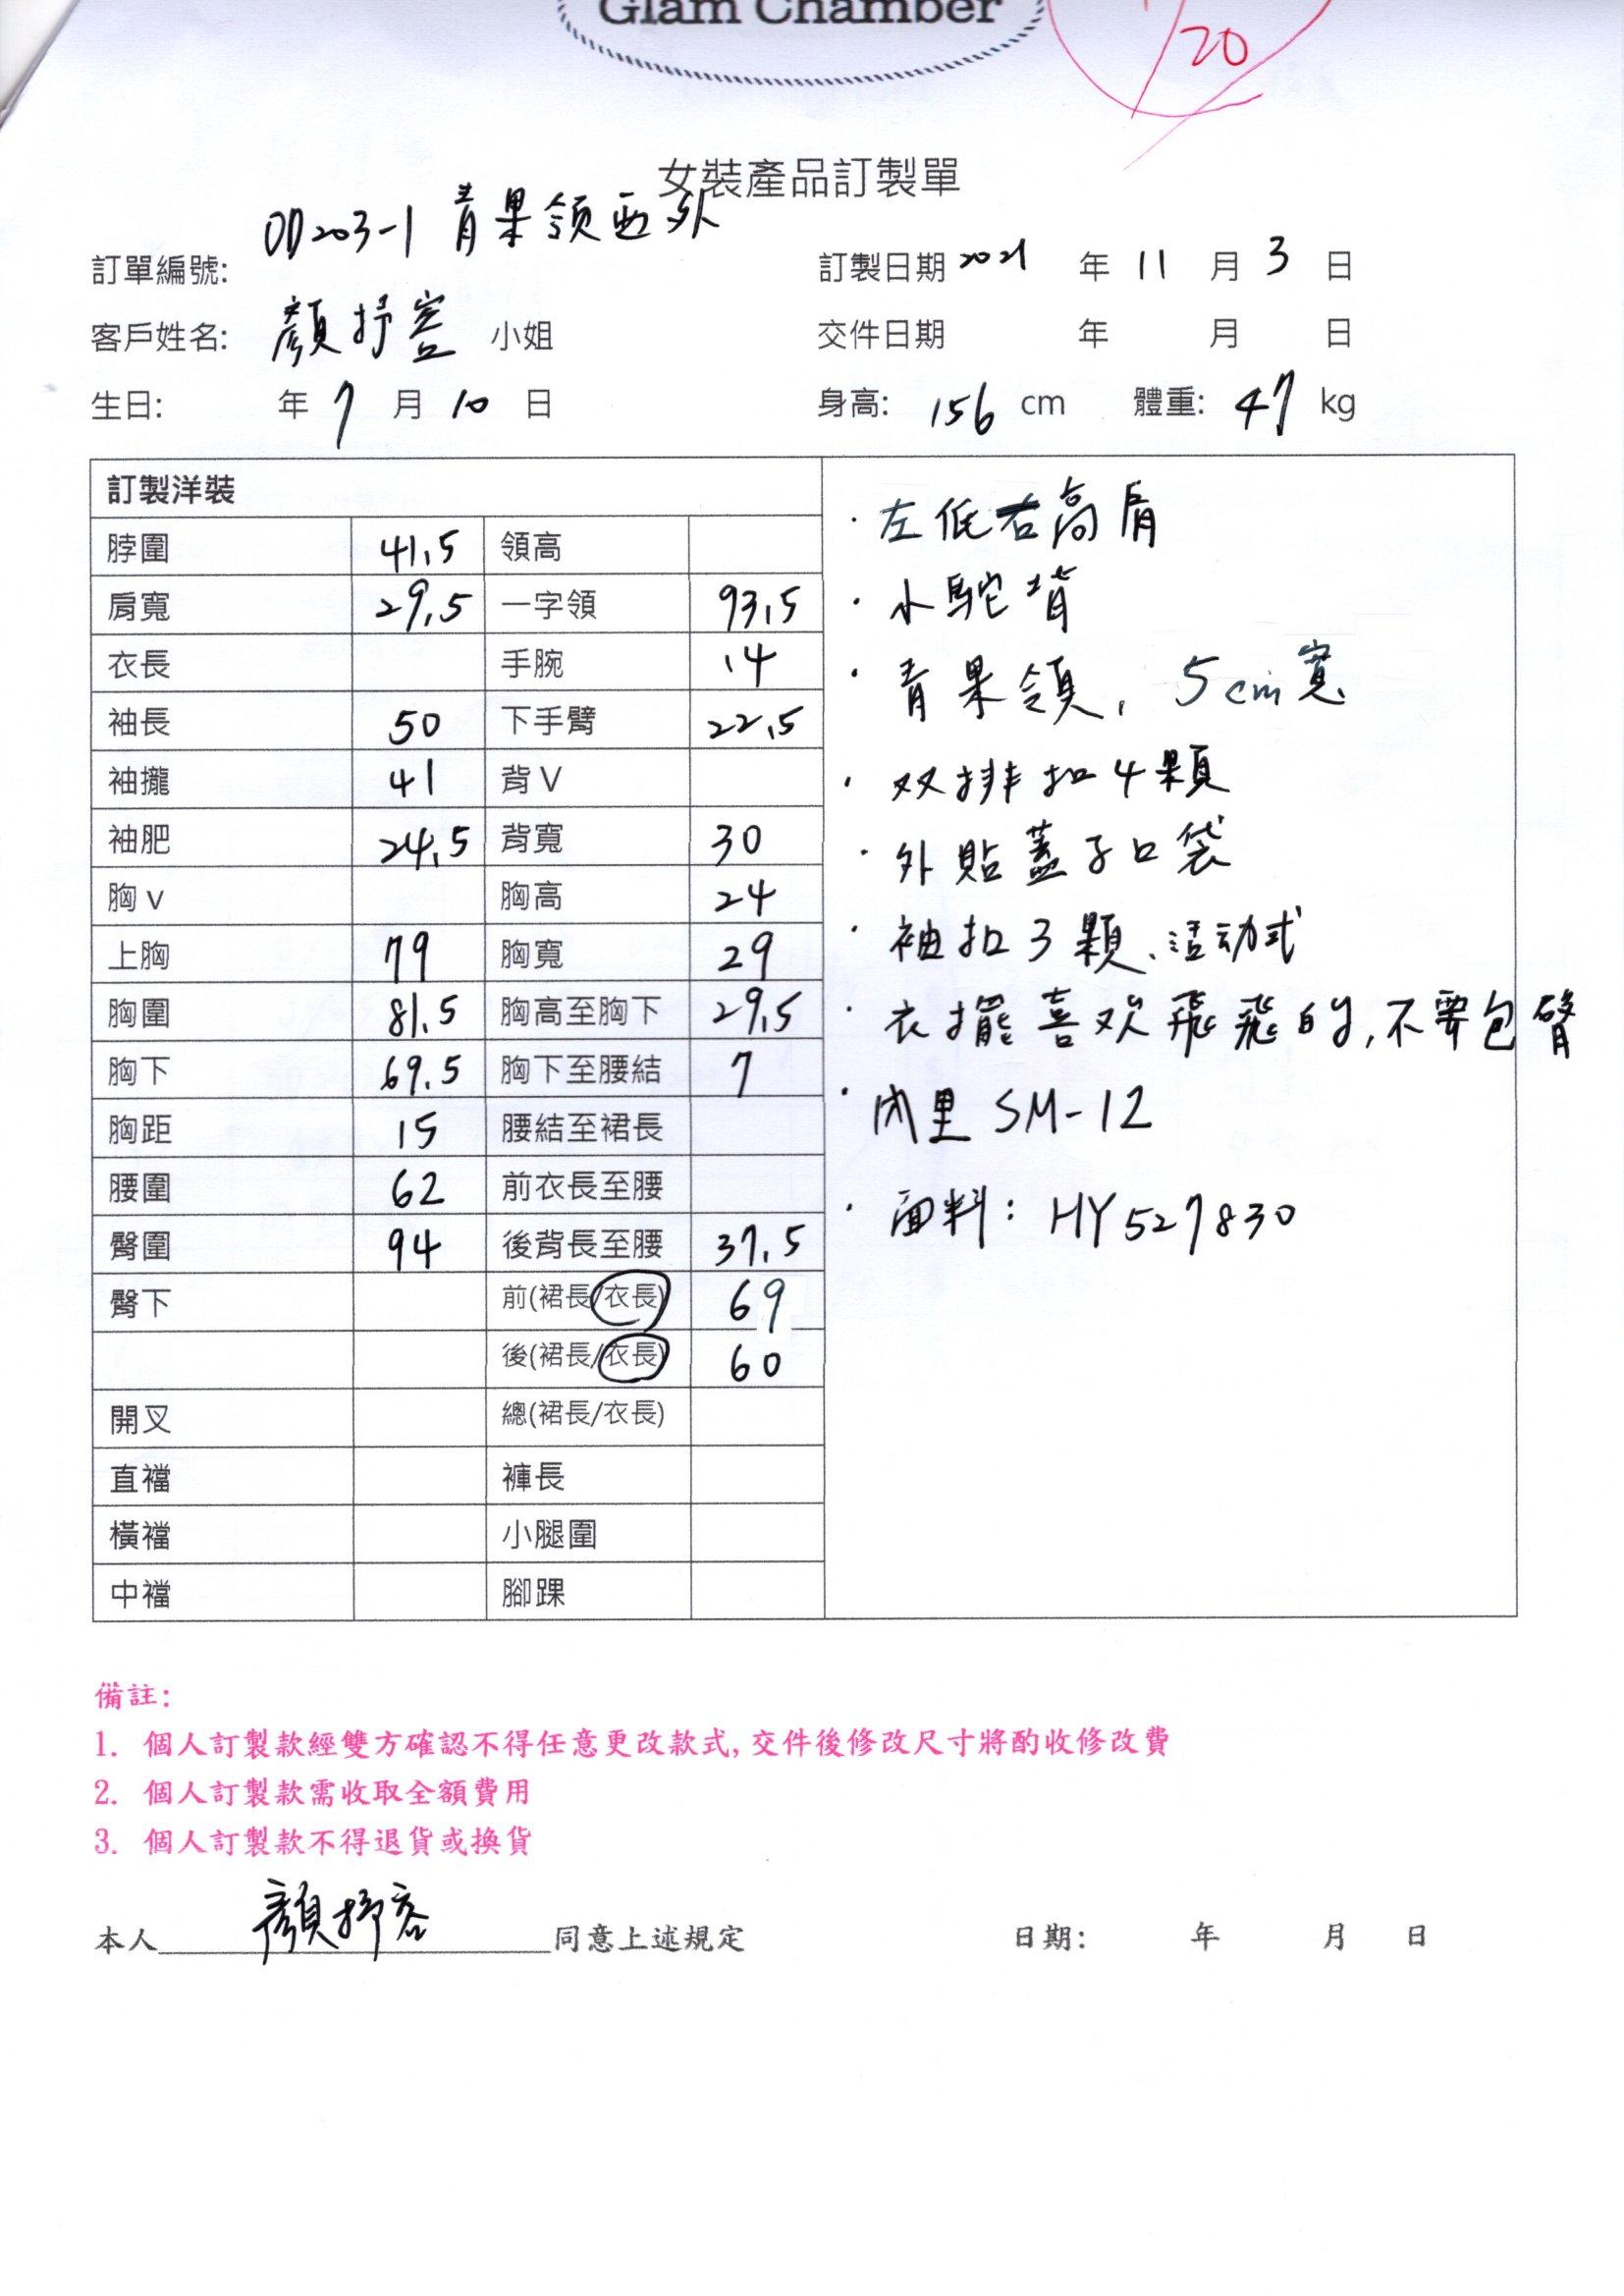 Glam Chamber
20
女裝產品訂製單
訂單編號: OD203-1 青果領西外
訂製日期 2021 年 11 月 3 日
客戶姓名: 顏抒容 小姐
交件日期 年 月 日
生日: 年 7 月 10 日
身高: 156 cm 體重: 47 kg
訂製洋裝
脖圍 41.5 領高
肩寬 29.5 一字領 93.5
衣長 手腕 14
袖長 50 下手臂 22.5
袖攏 41 背V
袖肥 24.5 背寬 30
胸v 胸高 24
上胸 79 胸寬 29
胸圍 81.5 胸高至胸下 29.5
胸下 69.5 胸下至腰結 7
胸距 15 腰結至裙長
腰圍 62 前衣長至腰
臀圍 94 後背長至腰 37.5
臀下 前(裙長/衣長) 69
後(裙長/衣長) 60
開叉 總(裙長/衣長)
直襠 褲長
橫襠 小腿圍
中襠 腳踝
·左低右高肩
·小駝背
·青果領, 5cm寬
·双排扣4顆
·外貼蓋子口袋
·袖扣3顆、活动式
·衣擺喜欢飛飛的,不要包臀
·內里 SM-12
·面料: HY527830
備註:
1. 個人訂製款經雙方確認不得任意更改款式,交件後修改尺寸將酌收修改費
2. 個人訂製款需收取全額費用
3. 個人訂製款不得退貨或換貨
本人 顏抒容 同意上述規定 日期: 年 月 日